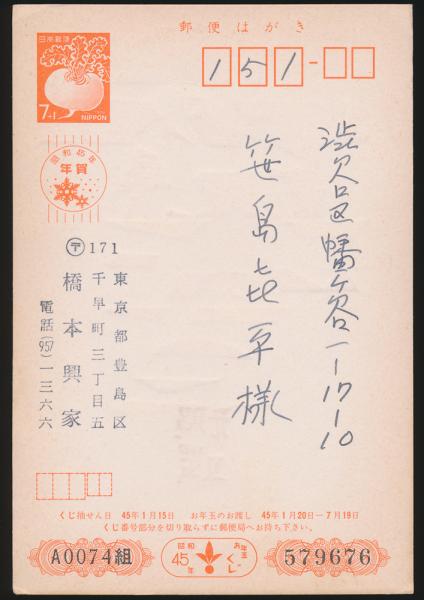 郵便はがき
日本郵便
7+1
NIPPON
151
昭和45年
年賀
渋谷区幡ヶ谷一ー17ー10
笹島㐂平様
〒171
東京都豊島区
千早町三丁目五
橋本興家
電話(957)一三六六
くじ抽せん日 45年1月15日 お年玉のお渡し 45年1月20日ー7月19日
くじ番号部分を切り取らずに郵便局へお持ち下さい。
A0074組
昭和45年
お年玉くじ
579676